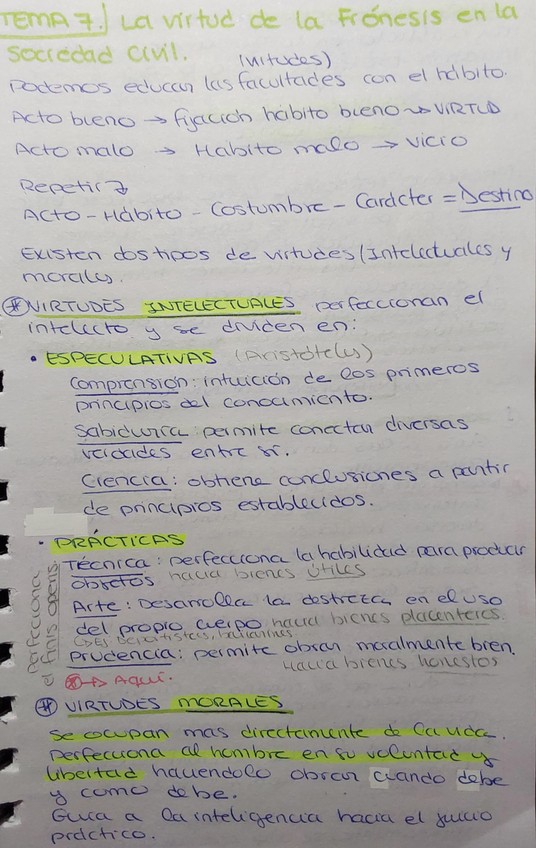 TEMA 7. La virtud de la Frónesis en la
Sociedad Civil.
(virtudes)
Podemos educar las facultades con el hábito.
Acto bueno → fijación hábito bueno → VIRTUD
Acto malo → Hábito malo → vicio
Repetir
Acto - Hábito - Costumbre - Carácter = Destino
Existen dos tipos de virtudes (Intelectuales y
morales.
* VIRTUDES INTELECTUALES perfeccionan el
intelecto y se dividen en:
• ESPECULATIVAS (Aristóteles)
Comprensión: intuición de los primeros
principios del conocimiento.
Sabiduría: permite conectar diversas
verdades entre sí.
Ciencia: obtiene conclusiones a partir
de principios establecidos.
• PRÁCTICAS
perfecciona
el finis operis
Técnica: perfecciona la habilidad para producir
objetos hacia bienes útiles
Arte: Desarrolla la destreza en el uso
del propio cuerpo hacia bienes placenteros.
Ej deportistas, bailarines
Prudencia: permite obrar moralmente bien.
hacia bienes honestos
* → Aquí.
* VIRTUDES MORALES
Se ocupan mas directamente de la vida.
Perfecciona al hombre en su voluntad y
libertad haciendolo obrar cuando debe
y como debe.
Guía a la inteligencia hacia el juicio
práctico.